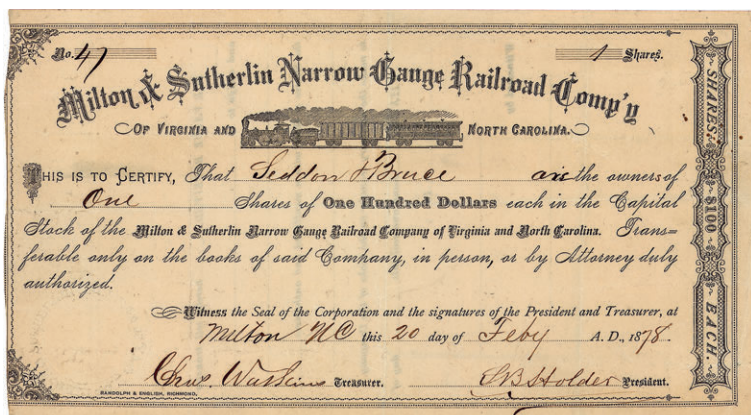 No. 47 1 Shares.
Milton & Sutherlin Narrow Gauge Railroad Comp'y
OF VIRGINIA AND NORTH CAROLINA.
THIS IS TO CERTIFY, That Seddon & Bruce are the owners of
One Shares of One Hundred Dollars each in the Capital
Stock of the Milton & Sutherlin Narrow Gauge Railroad Company of Virginia and North Carolina. Trans=
ferable only on the books of said Company, in person, or by Attorney duly
authorized.
Witness the Seal of the Corporation and the signatures of the President and Treasurer, at
Milton NC this 20 day of Feby A. D., 1878.
Chas Watkins Treasurer. S B Holder President.
RANDOLPH & ENGLISH, RICHMOND.
SHARES $100 EACH.